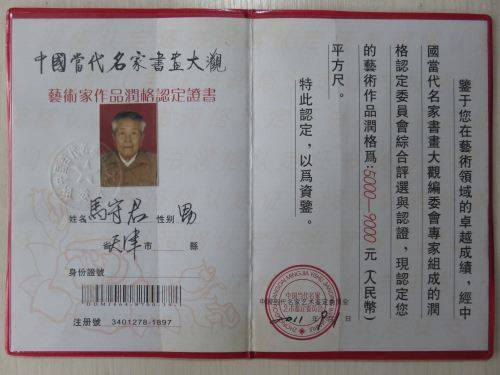 中國當代名家書畫大觀
藝術家作品潤格認定證書
姓名 馬守君 性别 男
省 天津 市 縣
身份證號
注册號 3401278-1897
鑒于您在藝術領域的卓越成績，經中
國當代名家書畫大觀編委會專家組成的潤
格認定委員會綜合評選與認證，現認定您
的藝術作品潤格爲：5000—9000 元（人民幣）
平方尺。
特此認定，以爲資鑒。
中國當代名家艺术鉴定委員会
年 月 日